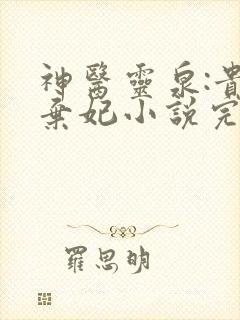 神醫靈泉:貴
棄妃小說完
羅思明